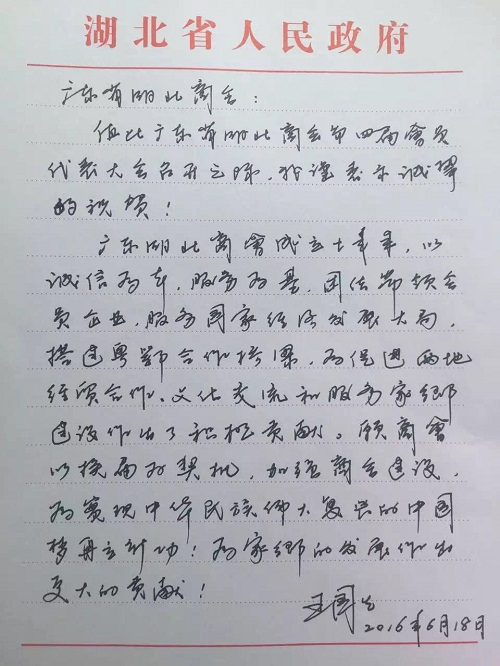 湖北省人民政府
广东省湖北商会：
值此广东省湖北商会第四届會员
代表大会召开之际，我谨表示诚摯
的祝贺！
广东湖北商會成立十年来，以
诚信为本，服务为基，团结带领会
员企业，服务国家经济发展大局，
搭建粤鄂合作桥梁，为促进两地
经贸合作、文化交流和服务家鄉
建设作出了积极贡献。願商會
以换届为契机，加强商会建设，
为实现中华民族伟大复兴的中国
梦再立新功！为家鄉的发展作出
更大的贡献！
王国生
2016年6月18日